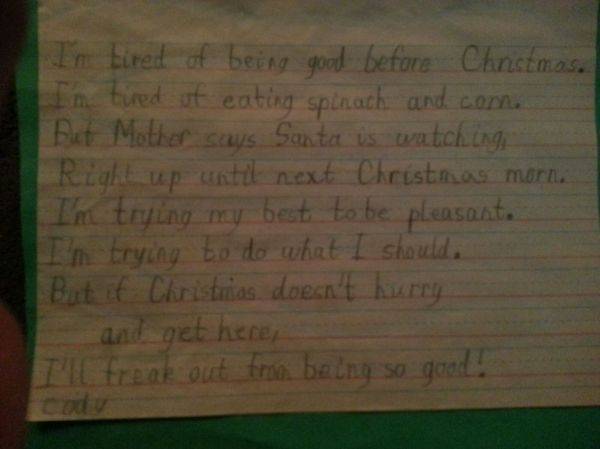 I'm tired of being good before Christmas.
I'm tired of eating spinach and corn.
But Mother says Santa is watching,
Right up until next Christmas morn.
I'm trying my best to be pleasant.
I'm trying to do what I should.
But if Christmas doesn't hurry
and get here,
I'll freak out from being so good!
Cody